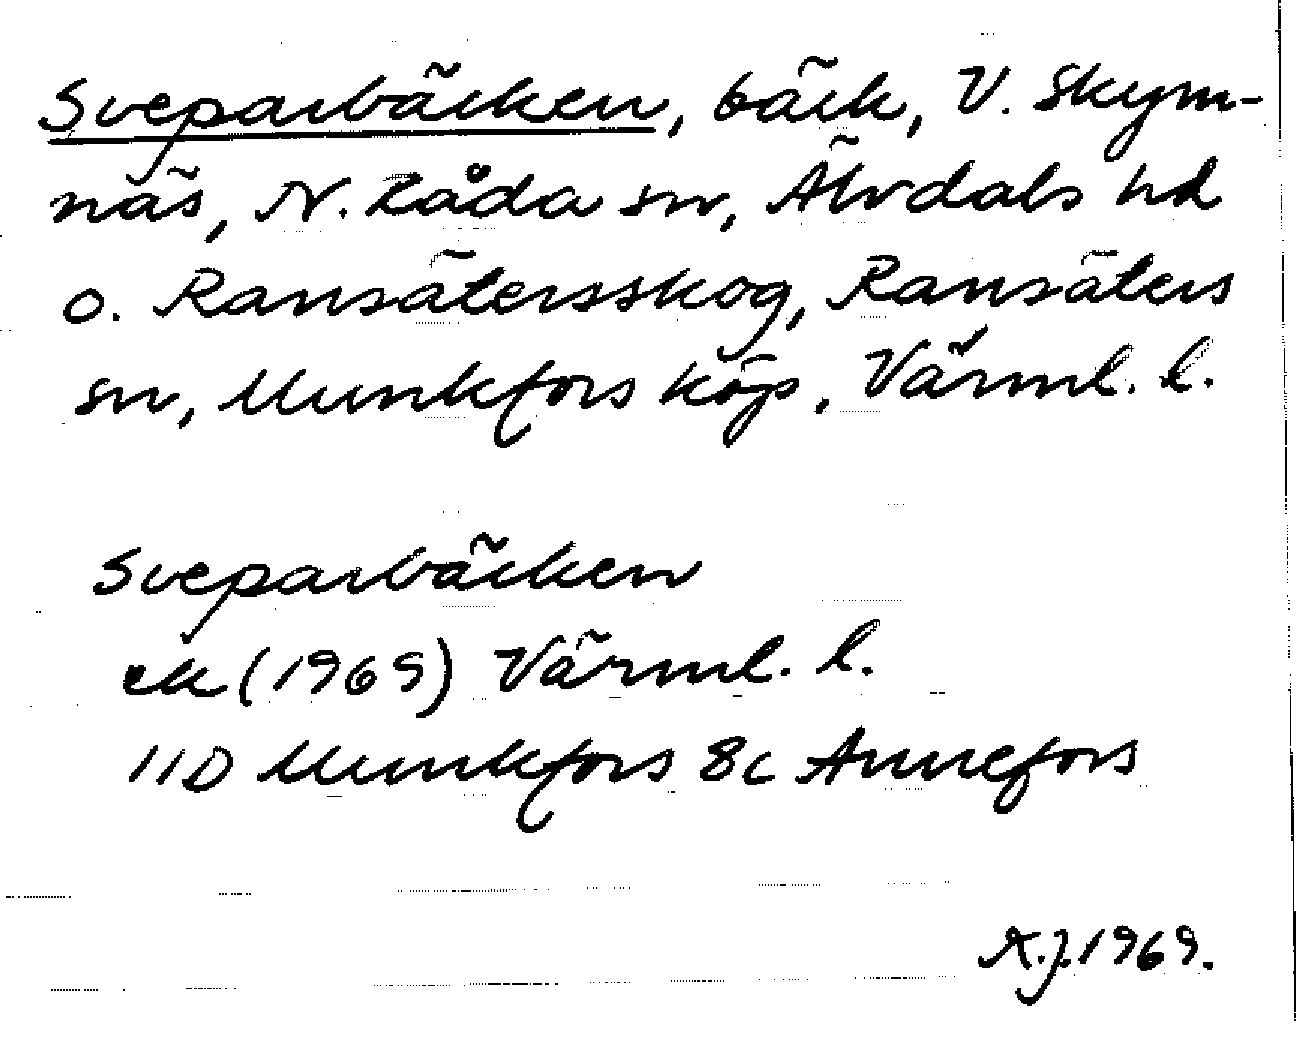 Sveparbäcken, bäck, V. Skym-
näs, N. Råda sn, Älvdals hd
o. Ransätersskog, Ransäters
sn, Munkfors köp, Värml. l.
Sveparbäcken
ek (1969) Värml. l.
11D Munkfors 8c Annefors
A.J. 1969.